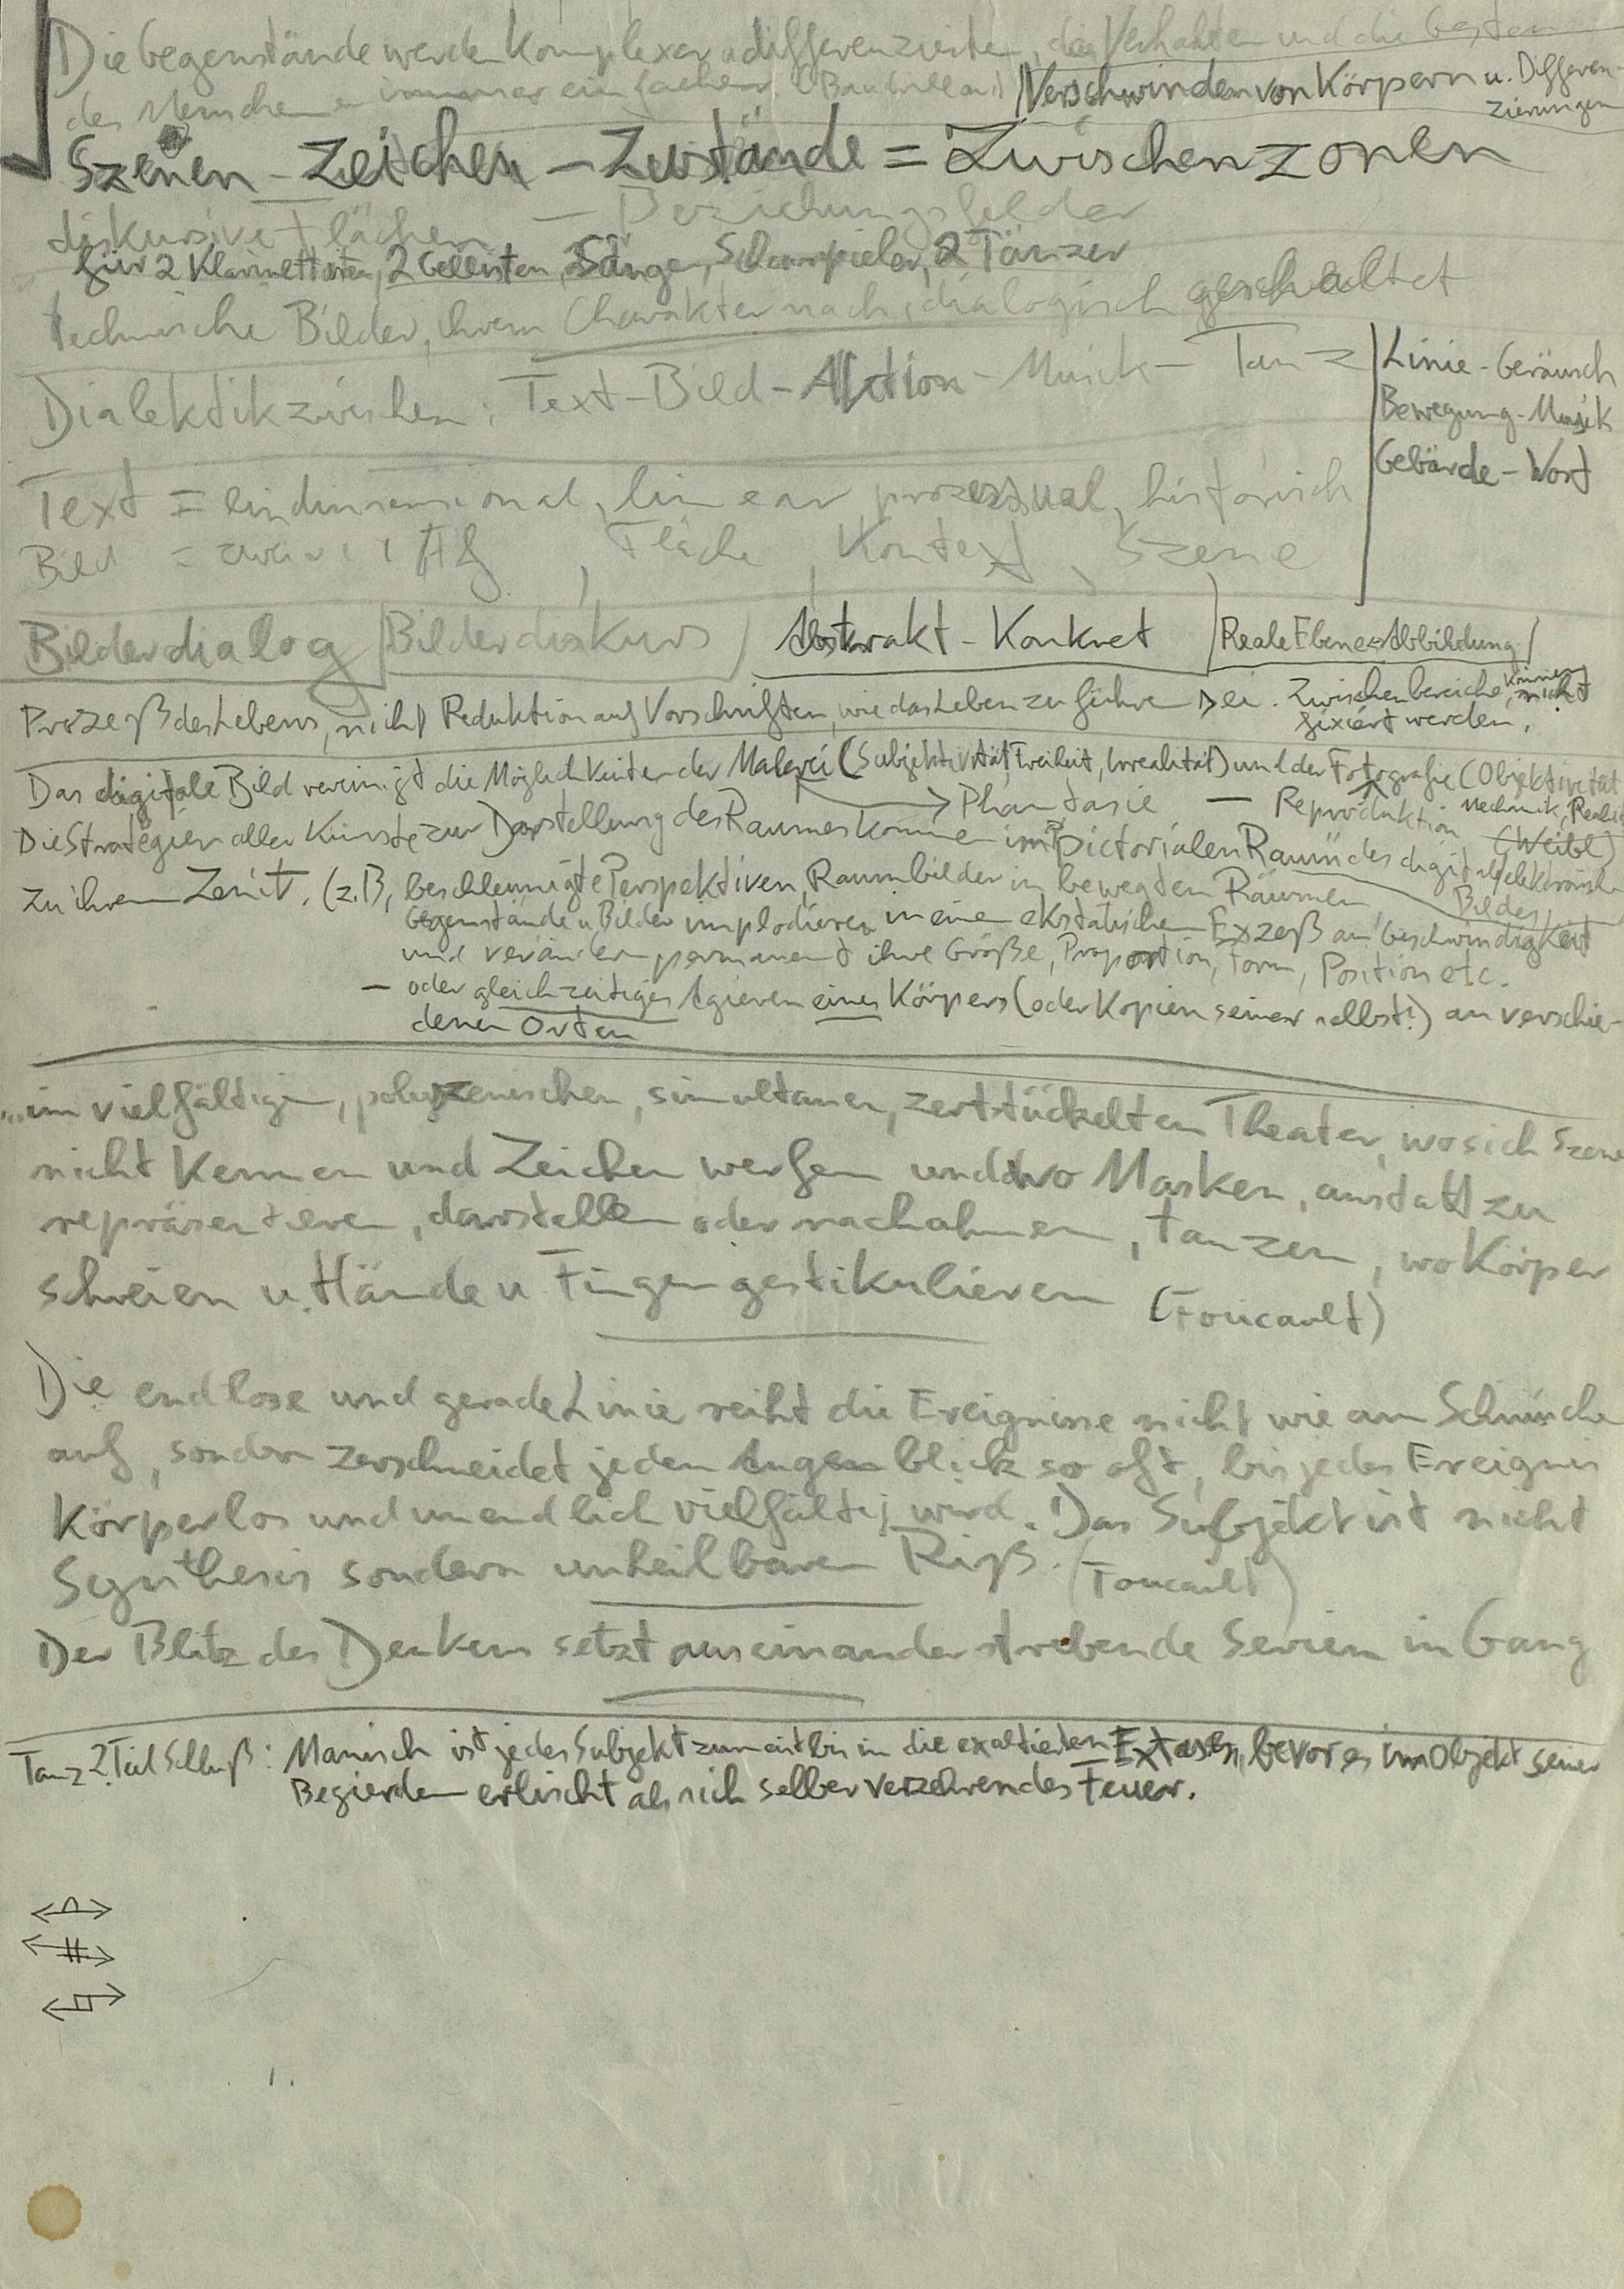 Die Gegenstände werden komplexer u. differenzierter, das Verhalten und die Gesten
des Menschen immer einfacher (Baudrillard) | Verschwinden von Körpern u. Differen-
zierungen
Szenen – Zeichen – Zustände = Zwischenzonen
diskursive Flächen – Beziehungsfelder
für 2 Klarinettisten, 2 Cellisten, Sänger, Schauspieler, 2 Tänzer
technische Bilder, ihrem Charakter nach, dialogisch geschaltet
Dialektik zwischen: Text – Bild – Aktion – Musik – Tanz
Linie – Geräusch
Bewegung – Musik
Gebärde – Wort
Text = eindimensional, linear, prozessual, historisch
Bild = zwei " , Fläche, Kontext, Szene
Bilderdialog | Bilderdiskurs / Abstrakt – Konkret | Reale Ebene Abbildung /
Prozeß des Lebens, nicht Reduktion auf Vorschriften, wie das Leben zu führen sei. Zwischenbereiche können nicht
fixiert werden.
Das digitale Bild vereinigt die Möglichkeiten der Malerei (Subjektivität, Freiheit, Irrealität) und der Fotografie (Objektivität
Mechanik, Realit
→ Phantasie – Reproduktion (Weibel)
Die Strategien aller Künste zur Darstellung des Raumes kommen im Pictorialen Raum des digital/elektronischen
Bildes
zu ihrem Zenit. (z.B. beschleunigte Perspektiven, Raumbilder in bewegten Räumen,
Gegenstände u. Bilder implodieren in einem ekstatischen Exzeß an Geschwindigkeit
und verändern permanent ihre Größe, Proportion, Form, Position etc.
– oder gleichzeitiges Agieren eines Körpers (oder Kopien seiner selbst!) an verschie-
denen Orten
...im vielfältigen, polyszenischen, simultanen, zerstückelten Theater, wo sich Szenen
nicht kennen und Zeichen werfen und wo Masken, anstatt zu
repräsentieren, darstellen oder nachahmen, tanzen, wo Körper
schreien u. Hände u. Finger gestikulieren (Foucault)
Die endlose und gerade Linie reiht die Ereignisse nicht wie am Schnürchen
auf, sondern zerschneidet jeden Augenblick so oft, bis jedes Ereignis
körperlos und unendlich vielfältig wird. Das Subjekt ist nicht
Synthesis sondern unheilbarer Riß. (Foucault)
Der Blitz des Denkens setzt auseinander strebende Serien in Gang
Tanz 2. Teil Schluß: Manisch ist jedes Subjekt zumeist bis in die exaltierten Extasen, bevor es im Objekt seiner
Begierden erlischt als sich selber verzehrendes Feuer.